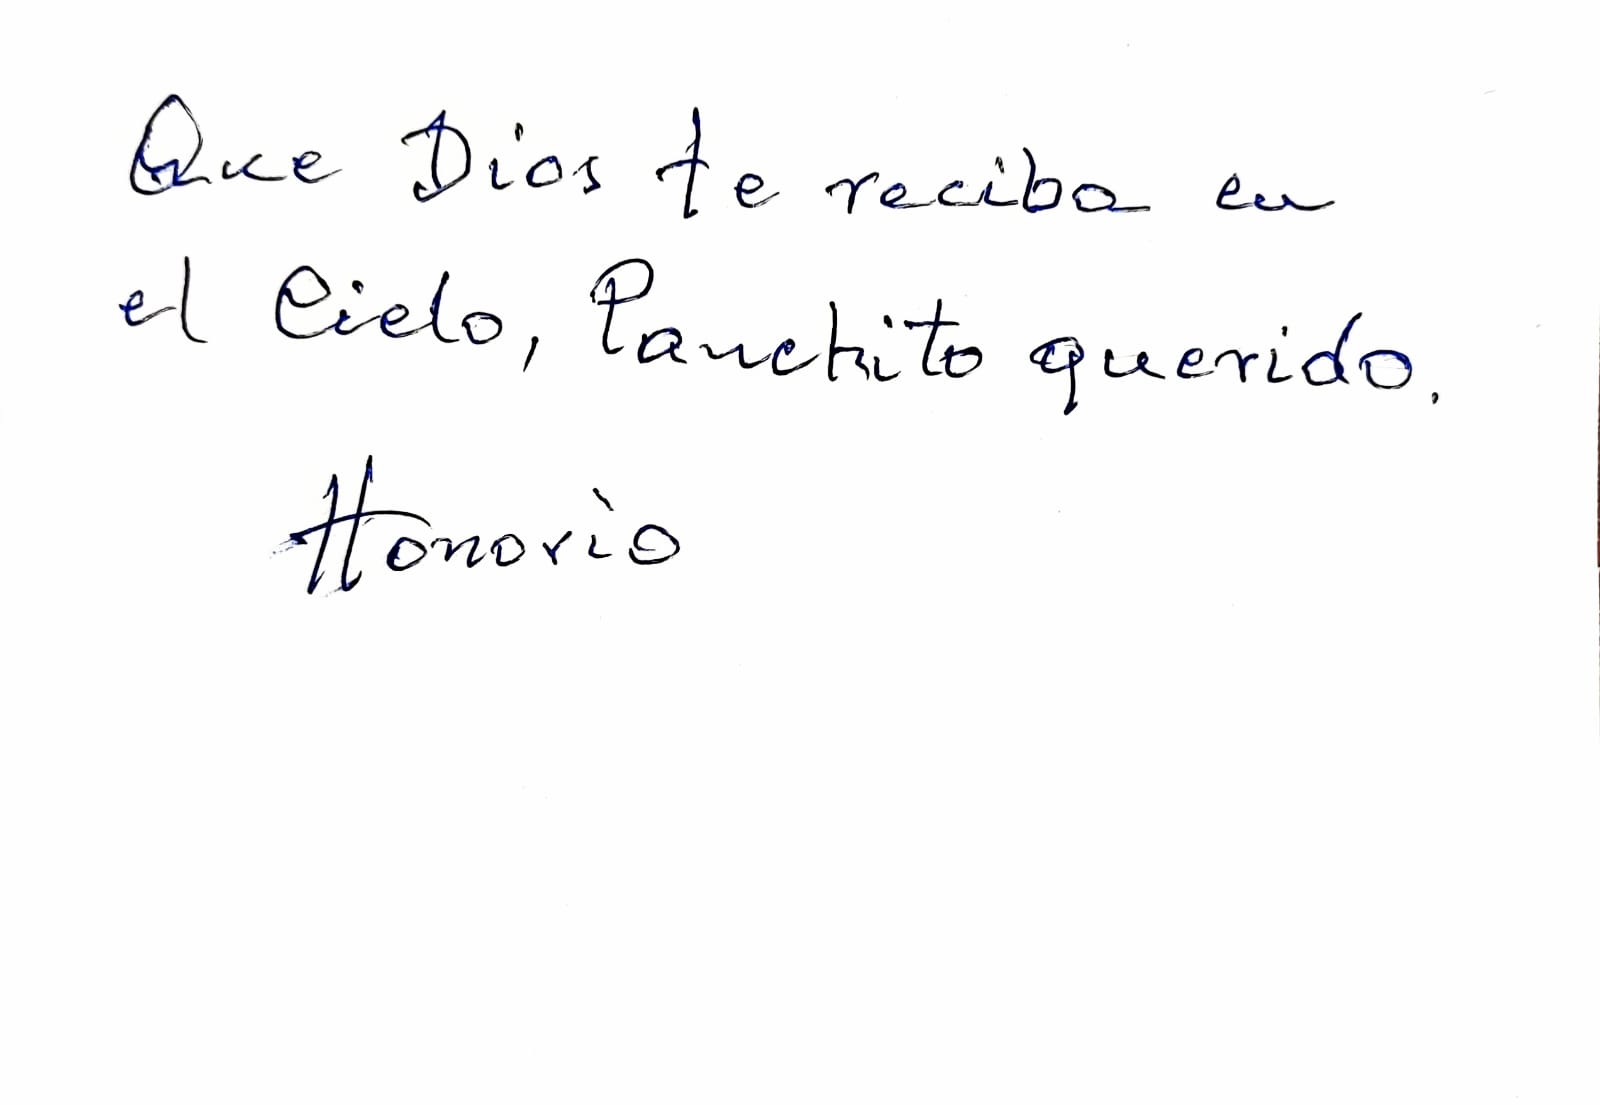 Que Dios te reciba en
el Cielo, Panchito querido.
Honorio